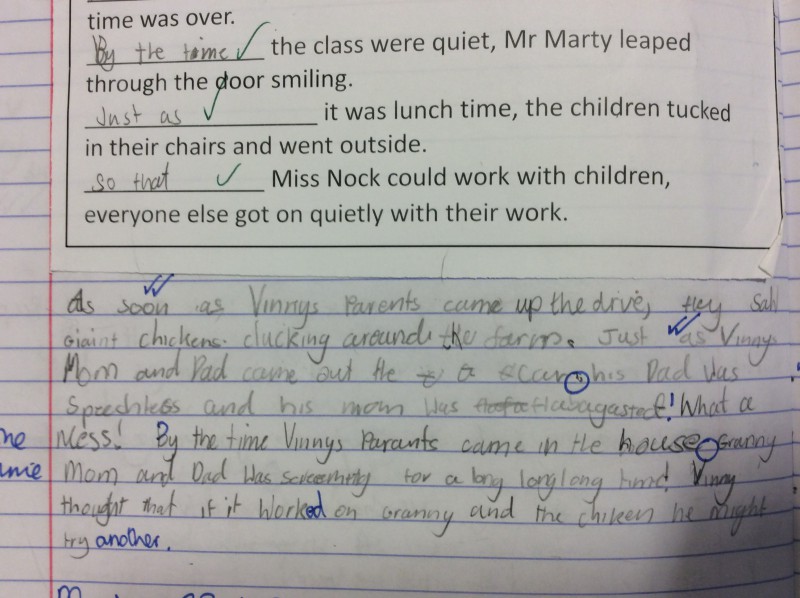 time was over.
By the time the class were quiet, Mr Marty leaped
through the door smiling.
Just as it was lunch time, the children tucked
in their chairs and went outside.
so that Miss Nock could work with children,
everyone else got on quietly with their work.
As soon as Vinnys Parents came up the drive, they sah
Giaint chickens clucking around the farm. Just as Vinnys
Mom and Dad came out the a car, his Dad was
Speechless and his mom was ! What a
Mess! By the time Vinnys Parants came in the house, Granny
Mom and Dad was screeming for a long long long time! Vinny
thought that if it worked on Granny and the chikeen he might
try another.